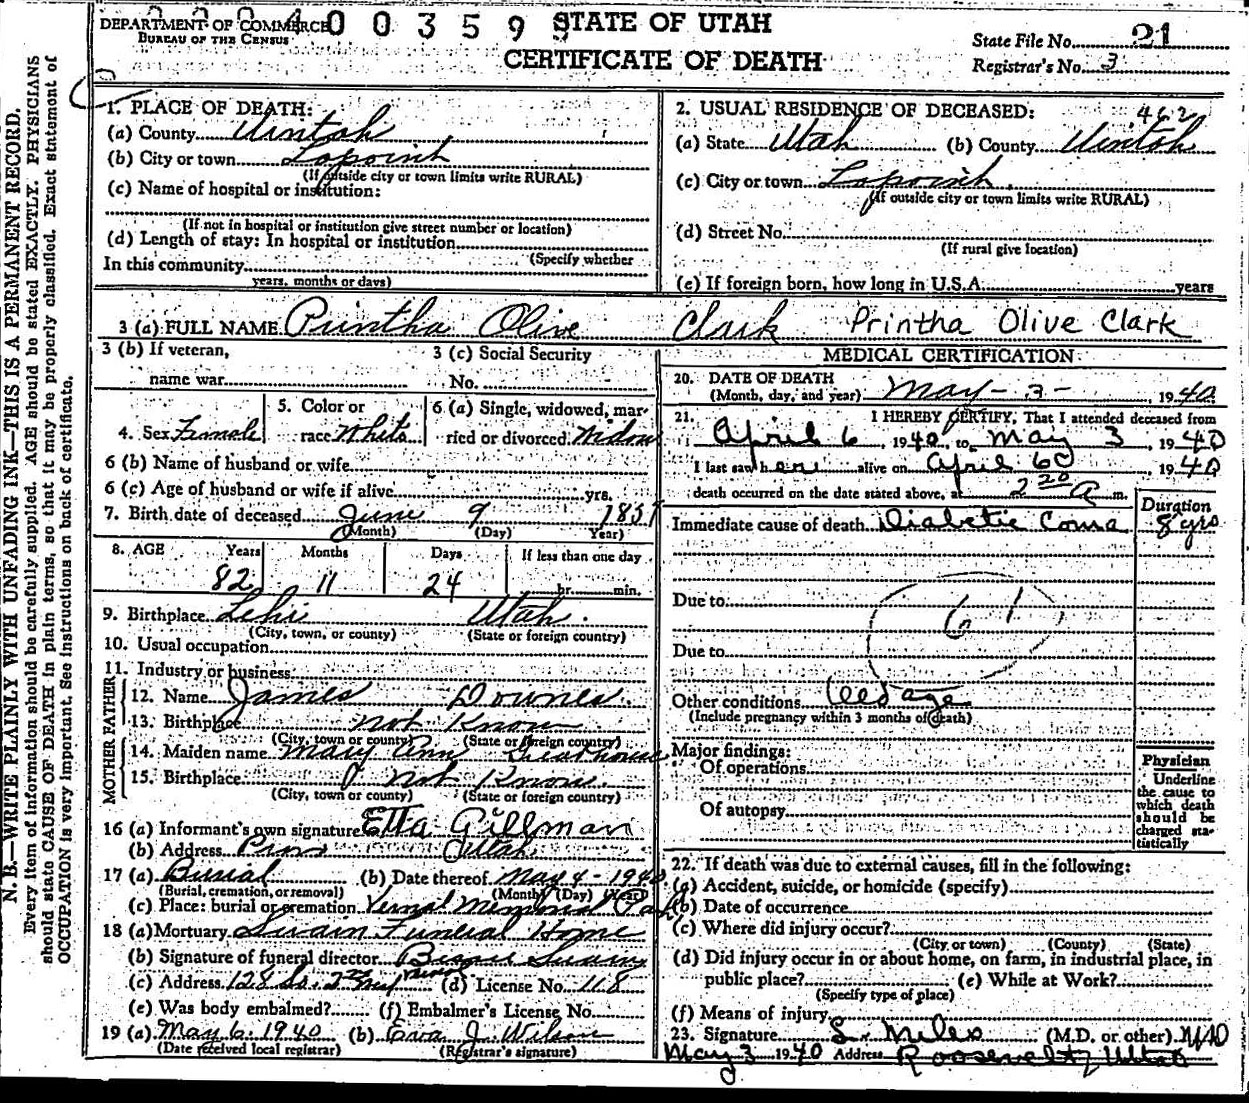 DEPARTMENT OF COMMERCE
BUREAU OF THE CENSUS
0 0 3 5 9
STATE OF UTAH
CERTIFICATE OF DEATH
State File No. 21
Registrar's No. 3
N. B.—WRITE PLAINLY WITH UNFADING INK—THIS IS A PERMANENT RECORD.
Every item of information should be carefully supplied. AGE should be stated EXACTLY. PHYSICIANS
should state CAUSE OF DEATH in plain terms, so that it may be properly classified. Exact statement of
OCCUPATION is very important. See instructions on back of certificate.
1. PLACE OF DEATH:
(a) County Uintah
(b) City or town Lapoint
(If outside city or town limits write RURAL)
(c) Name of hospital or institution:
(If not in hospital or institution give street number or location)
(d) Length of stay: In hospital or institution
(Specify whether
In this community
years, months or days)
2. USUAL RESIDENCE OF DECEASED: 462
(a) State Utah (b) County Uintah
(c) City or town Lapoint
(If outside city or town limits write RURAL)
(d) Street No.
(If rural give location)
(e) If foreign born, how long in U.S.A. years
3 (a) FULL NAME Printha Olive Clark Printha Olive Clark
3 (b) If veteran,
name war
3 (c) Social Security
No.
4. Sex Female
5. Color or
race White
6 (a) Single, widowed, mar-
ried or divorced Widow
6 (b) Name of husband or wife
6 (c) Age of husband or wife if alive yrs.
7. Birth date of deceased June 9 1857
(Month) (Day) Year)
8. AGE Years Months Days If less than one day
82 11 24 hr. min.
9. Birthplace Lehi Utah.
(City, town, or county) (State or foreign country)
10. Usual occupation
11. Industry or business
FATHER
12. Name James Downes.
13. Birthplace not Know
(City, town or county) (State or foreign country)
MOTHER
14. Maiden name Mary Ann Greathouse
15. Birthplace not Know.
(City, town or county) (State or foreign country)
16 (a) Informant's own signature Etta Gillman
(b) Address Provo Utah
17 (a) Burial (b) Date thereof May 4 - 1940
(Burial, cremation, or removal) (Month) (Day) (Year)
(c) Place: burial or cremation Vernal Memorial Park
18 (a) Mortuary Swain Funeral Home
(b) Signature of funeral director Swain
(c) Address 128 So. 2nd (d) License No. 118
(e) Was body embalmed? (f) Embalmer's License No.
19 (a) May 6. 1940 (b) Eva J. Wilson
(Date received local registrar) (Registrar's signature)
MEDICAL CERTIFICATION
20. DATE OF DEATH
(Month, day, and year) May - 3 - 1940
21. I HEREBY CERTIFY, That I attended deceased from
April 6, 1940, to May 3 1940
I last saw her alive on April 60 1940
death occurred on the date stated above, at 2 20 A m.
Duration
Immediate cause of death Diabetic Coma 8 yrs
Due to
61
Due to
Other conditions Old age
(Include pregnancy within 3 months of death)
Major findings:
Of operations
Of autopsy
Physician
Underline
the cause to
which death
should be
charged sta-
tistically
22. If death was due to external causes, fill in the following:
(a) Accident, suicide, or homicide (specify)
(b) Date of occurrence
(c) Where did injury occur?
(City or town) (County) (State)
(d) Did injury occur in or about home, on farm, in industrial place, in
public place? (e) While at Work?
(Specify type of place)
(f) Means of injury
23. Signature Miles (M.D. or other) MD
May 3 1940 Address Roosevelt, Utah